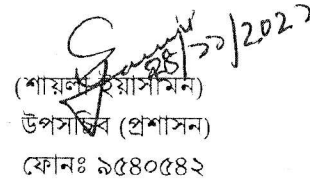 ২৪/১১/২০২১
(শায়লা ইয়াসমিন)
উপসচিব (প্রশাসন)
ফোনঃ ৯৫৪০৫৪২